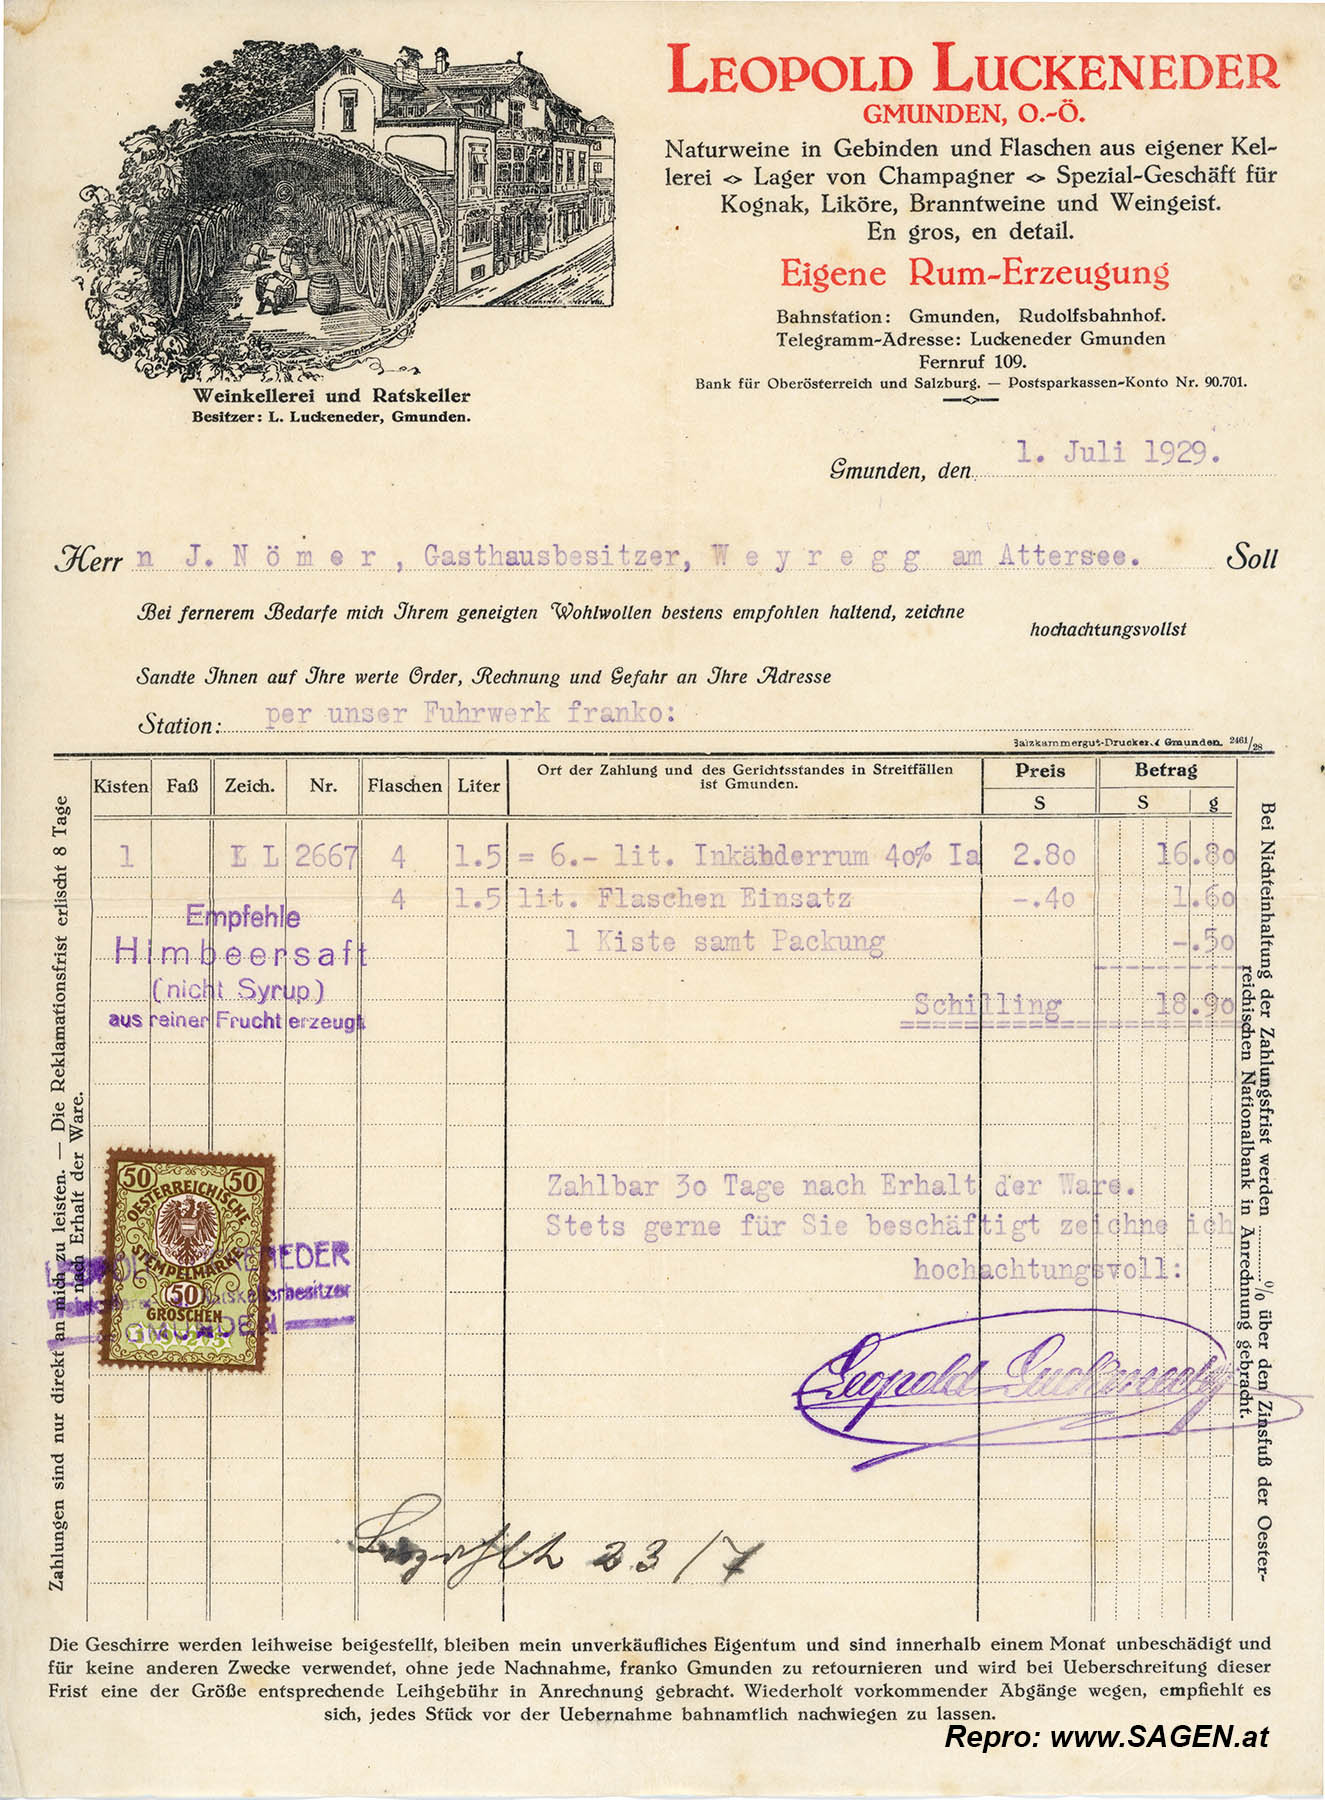 LEOPOLD LUCKENEDER
GMUNDEN, O.-Ö.
Naturweine in Gebinden und Flaschen aus eigener Kel-
lerei <> Lager von Champagner <> Spezial-Geschäft für
Kognak, Liköre, Branntweine und Weingeist.
En gros, en detail.
Eigene Rum-Erzeugung
Bahnstation: Gmunden, Rudolfsbahnhof.
Telegramm-Adresse: Luckeneder Gmunden
Fernruf 109.
Bank für Oberösterreich und Salzburg. — Postsparkassen-Konto Nr. 90.701.
Weinkellerei und Ratskeller
Besitzer: L. Luckeneder, Gmunden.
Gmunden, den 1. Juli 1929.
Herr n J. Nömer, Gasthausbesitzer, Weyregg am Attersee. Soll
Bei fernerem Bedarfe mich Ihrem geneigten Wohlwollen bestens empfohlen haltend, zeichne
hochachtungsvollst
Sandte Ihnen auf Ihre werte Order, Rechnung und Gefahr an Ihre Adresse
Station: per unser Fuhrwerk franko:
Salzkammergut-Druckerei Gmunden. 2461/28
Kisten Faß Zeich. Nr. Flaschen Liter Ort der Zahlung und des Gerichtsstandes in Streitfällen Preis Betrag
ist Gmunden.
S S g
1 LL 2667 4 1.5 = 6.- lit. Inkähderrum 40% Ia 2.80 16.80
4 1.5 lit. Flaschen Einsatz -.40 1.60
1 Kiste samt Packung -.50
Schilling 18.90
Empfehle
Himbeersaft
(nicht Syrup)
aus reiner Frucht erzeugt
Zahlbar 30 Tage nach Erhalt der Ware.
Stets gerne für Sie beschäftigt zeichne ich
hochachtungsvoll:
50 50
OESTERREICHISCHE
STEMPELMARKE
50
GROSCHEN
1925
LEOPOLD LUCKENEDER
Ratskellerbesitzer
GMUNDEN
Leopold Luckeneder
Bezahlt 23/7
Zahlungen sind nur direkt an mich zu leisten. — Die Reklamationsfrist erlischt 8 Tage
nach Erhalt der Ware.
Bei Nichteinhaltung der Zahlungsfrist werden ..........% über den Zinsfuß der Oester-
reichischen Nationalbank in Anrechnung gebracht.
Die Geschirre werden leihweise beigestellt, bleiben mein unverkäufliches Eigentum und sind innerhalb einem Monat unbeschädigt und
für keine anderen Zwecke verwendet, ohne jede Nachnahme, franko Gmunden zu retournieren und wird bei Ueberschreitung dieser
Frist eine der Größe entsprechende Leihgebühr in Anrechnung gebracht. Wiederholt vorkommender Abgänge wegen, empfiehlt es
sich, jedes Stück vor der Uebernahme bahnamtlich nachwiegen zu lassen.
Repro: www.SAGEN.at